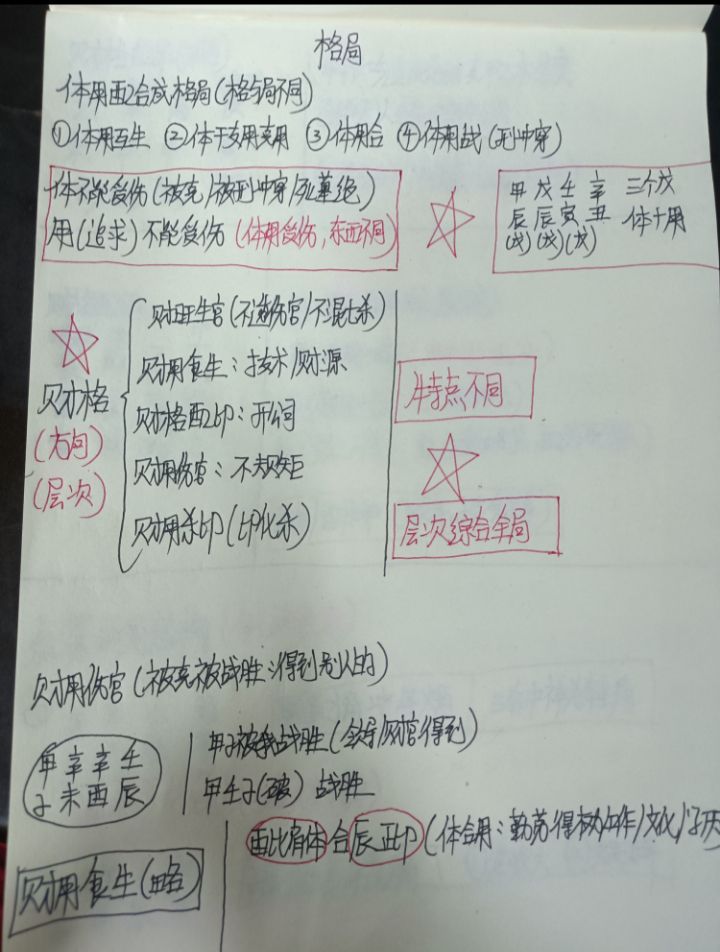 格局
体用配合成格局(格与局不同)
①体用互生 ②体干支用支用 ③体用合 ④体用战(刑冲穿)
体不能受伤(被克/被刑冲穿/死墓绝)
用(追求)不能受伤(体用受伤,东西不同)
甲 戊 壬 辛 三个戊
辰 辰 寅 丑 体十用
(戊)(戊)(戊)
财旺生官(不逢伤官/不混七杀)
财用食生:技术/财源
财格配印:开公司
财用伤官:不规矩
财用杀印(印化杀)
财格
(方向)
(层次)
特点不同
层次综合全局
财用伤官(被克被战胜:得到别人的)
甲 辛 辛 壬
子 未 酉 辰
甲子被我战胜(领导/财官得到)
甲生子(破)战胜
酉比肩体合辰正印(体合用:勤劳得 工作/文化/
财用食生(略)